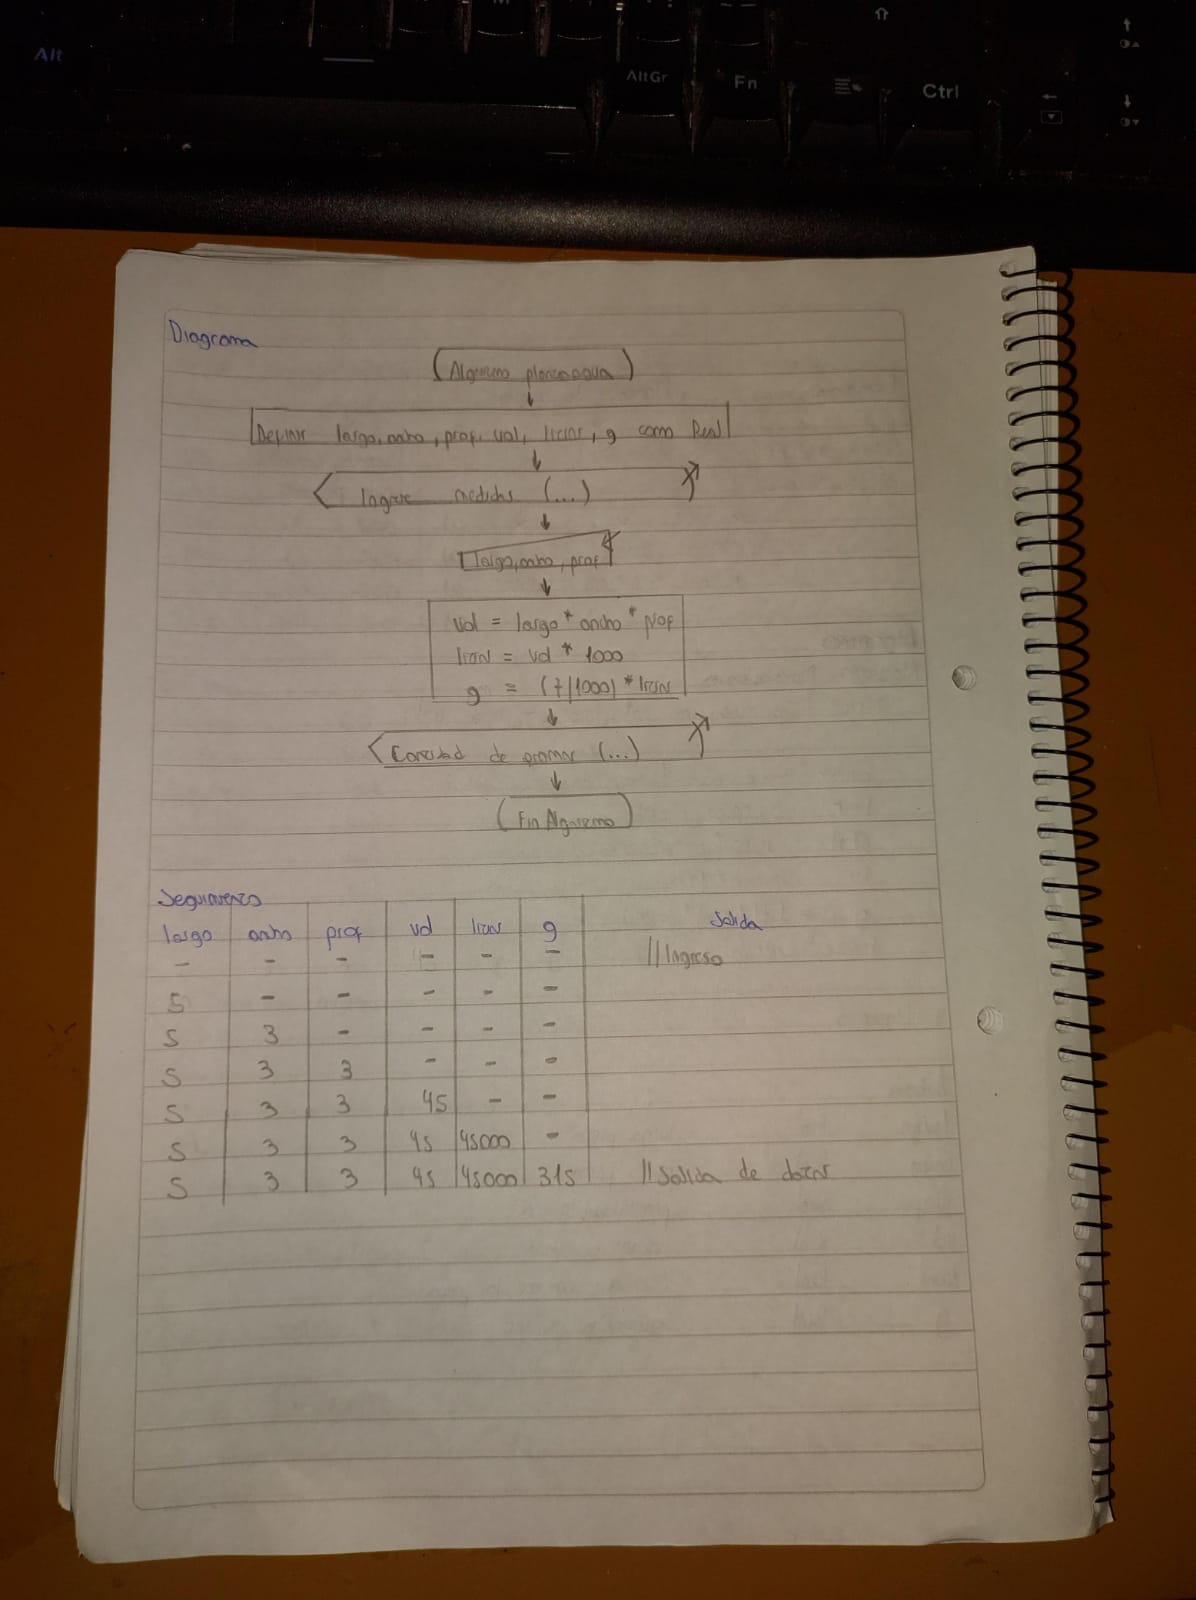 Alt
AltGr
Fn
Ctrl
Diagrama
Definir largo, ancho, prof, vol, litros, g como Real
Ingrese medidas (...)
largo, ancho, prof
vol = largo * ancho * prof
litros = vol * 1000
g = (7/1000) * litros
Cantidad de gramos (...)
Fin Algoritmo
Seguimiento
largo ancho prof vol litros g Salida
- - - - - - // Ingreso
5 - - - - -
5 3 - - - -
5 3 3 - - -
5 3 3 45 - -
5 3 3 45 45000 -
5 3 3 45 45000 315 // Salida de datos